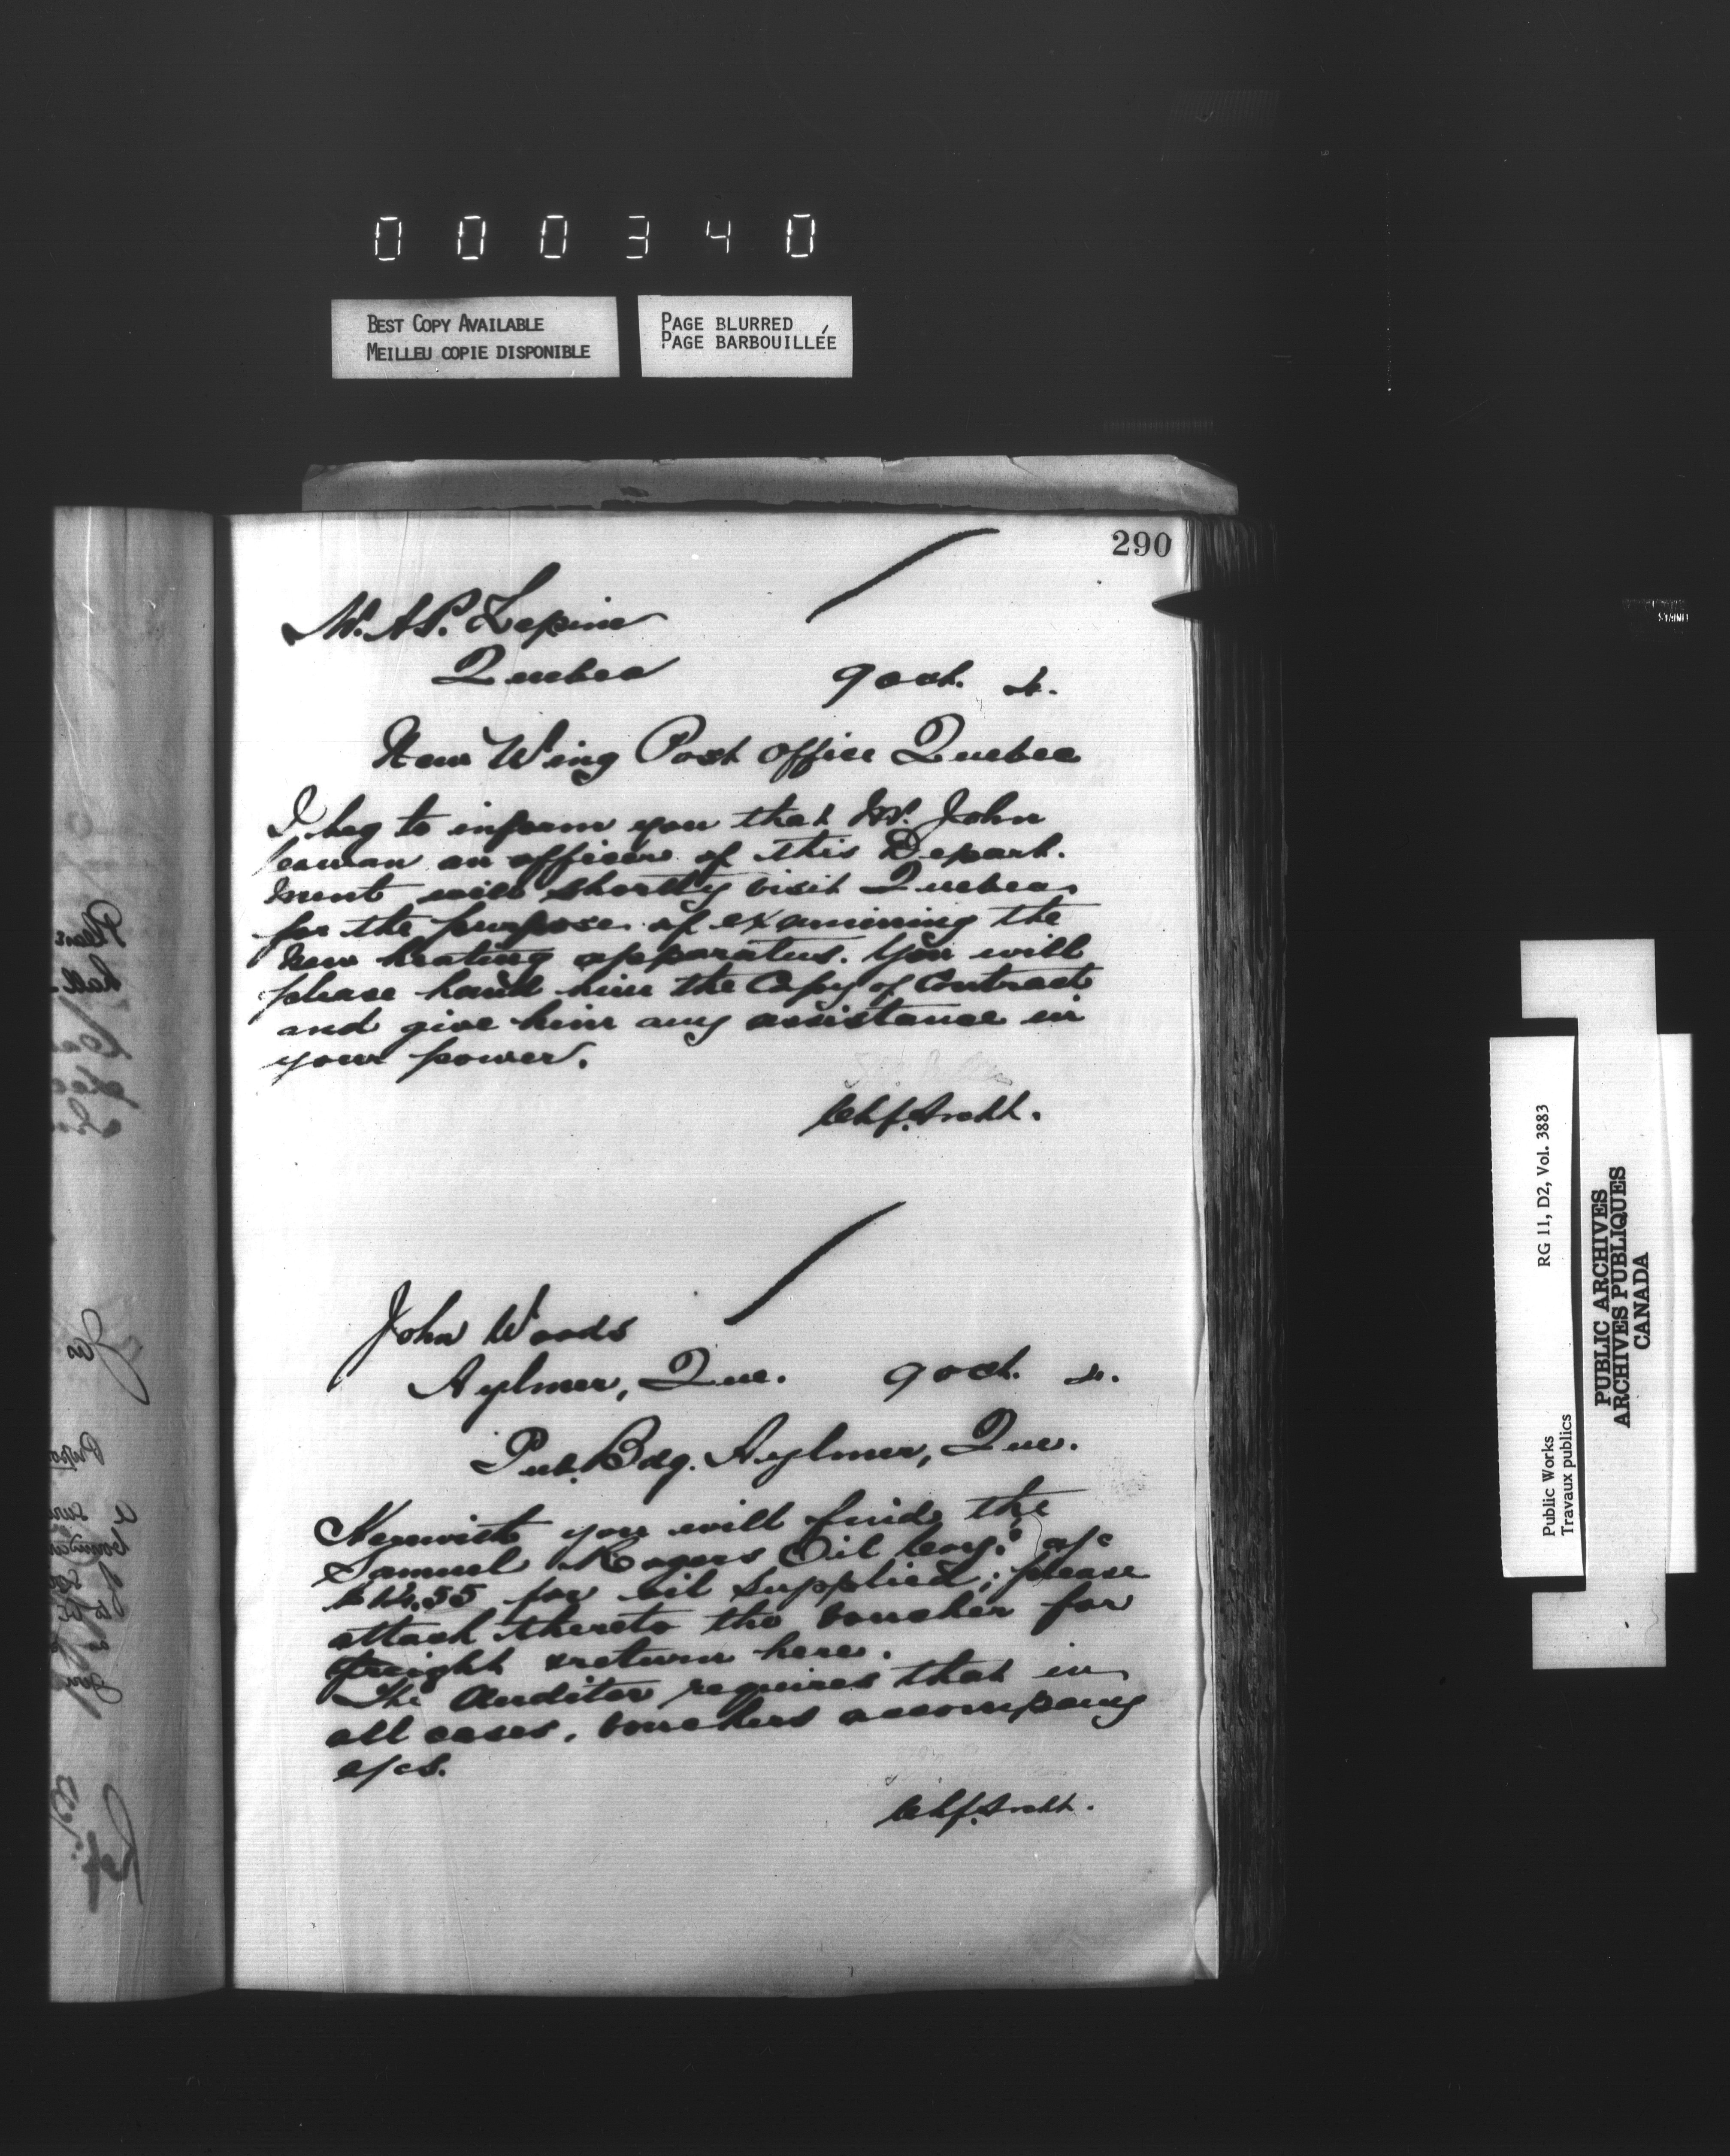 000340
BEST COPY AVAILABLE
MEILLEU COPIE DISPONIBLE
PAGE BLURRED
PAGE BARBOUILLÉE
290
M. A.P. Lepine
Quebec 9 Oct.
New Wing Post Office Quebec
I beg to inform you that Mr. John
an officer of this Depart.
ment will shortly visit Quebec
for the purpose of examining the
New heating apparatus. You will
please hand him the Copy of Contract
and give him any assistance in
your power.
Chf. Archt.
John Woods
Aylmer, Que. 9 Oct.
Pub. Bdg. Aylmer, Que.
Herewith you will find the
Samuel Rogers Oil Coy's a/c
for oil supplied; please
attach thereto the voucher for
freight & return here.
The Auditor requires that in
all cases, vouchers accompany
a/cs.
Chf. Archt.
Public Works
Travaux publics
RG 11, D2, Vol. 3883
PUBLIC ARCHIVES
ARCHIVES PUBLIQUES
CANADA